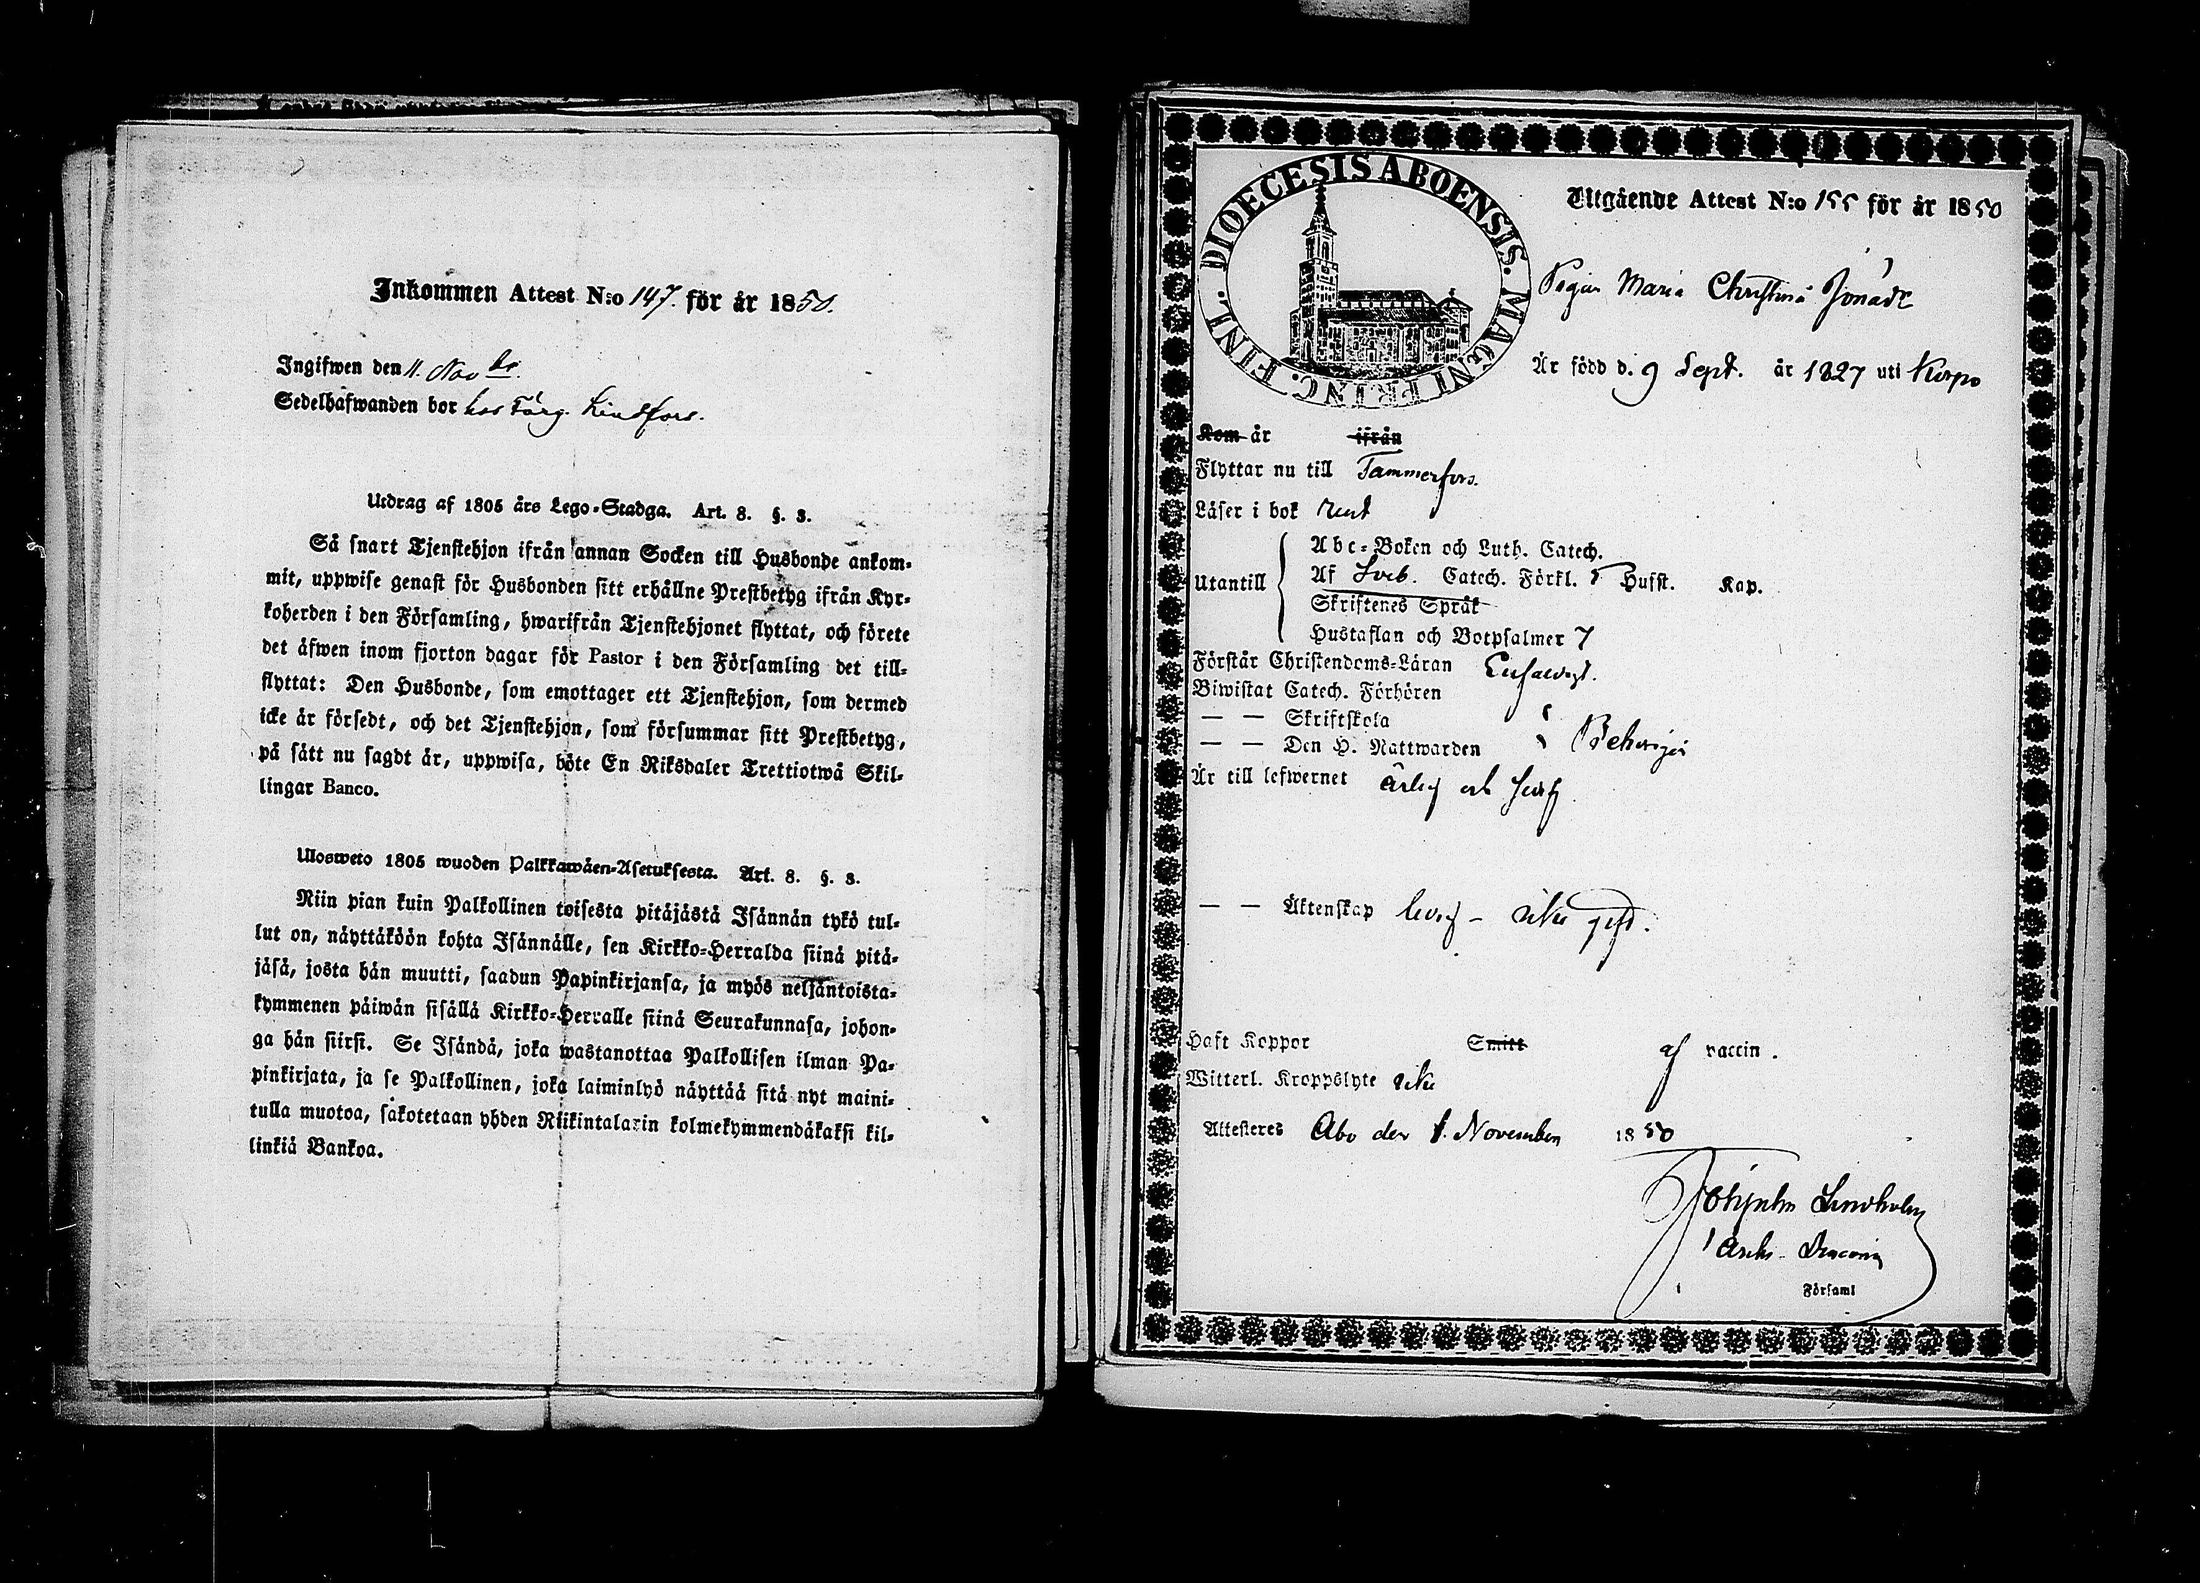 Inkommen Attest N:o 147. för år 1850.
Ingifwen den 11. Novbr.
Sedelhafwanden bor hos Färg. Lindfors.
Utdrag af 1805 års Lego-Stadga. Art. 8. §. 3.
Så snart Tjenstehjon ifrån annan Socken till Husbonde ankom-
mit, uppwise genast för Husbonden sitt erhållne Prestbetyg ifrån Kyr-
koherden i den Församling, hwarifrån Tjenstehjonet flyttat, och förete
det äfwen inom fjorton dagar för Pastor i den Församling det till-
flyttat: Den Husbonde, som emottager ett Tjenstehjon, som dermed
icke är försedt, och det Tjenstehjon, som försummar sitt Prestbetyg,
på sätt nu sagdt är, uppwisa, böte En Riksdaler Trettiotwå Skil-
lingar Banco.
Ulosweto 1805 wuoden Palkkawäen-Asetuksesta. Art. 8. §. 3.
Niin pian kuin Palkollinen toisesta pitäjästä Isännän tykö tul-
lut on, näyttäköön kohta Isännälle, sen Kirkko-Herralda siinä pitä-
jäsä, josta hän muutti, saadun Papinkirjansa, ja myös neljäntoista-
kymmenen päiwän sisällä Kirkko-Herralle siinä Seurakunnasa, johon-
ga hän siirsi. Se Isändä, joka wastanottaa Palkollisen ilman Pa-
pinkirjata, ja se Palkollinen, joka laiminlyö näyttää sitä nyt maini-
tulla muotoa, sakotetaan yhden Riikintalarin kolmekymmendäkaksi kil-
linkiä Bankoa.
DIOECESIS ABOENSIS. MAGNI PRINC. FINL.
Utgående Attest N:o 155 för år 1850
Pigan Maria Christina
Är född d. 9 Sept. år 1827 uti Korpo
Kom år ifrån
Flyttar nu till Tammerfors.
Läser i bok rent
Utantill
Abc-Boken och Luth. Catech.
Af Sveb. Catech. Förkl. Husst. Kap.
Skriftenes Språk
Hustaflan och Botpsalmer 7
Förstår Christendoms-Läran
Biwistat Catech. Förhören
— — Skriftskola
— — Den H. Nattwarden Behörigen
Är till lefwernet ärlig och
— — Äktenskap ledig - icke gift.
Haft Koppor Smitt af vaccin.
Witterl. Kroppslyte icke
Attesteres Åbo den 1. November 1850
Lindholm
Församl